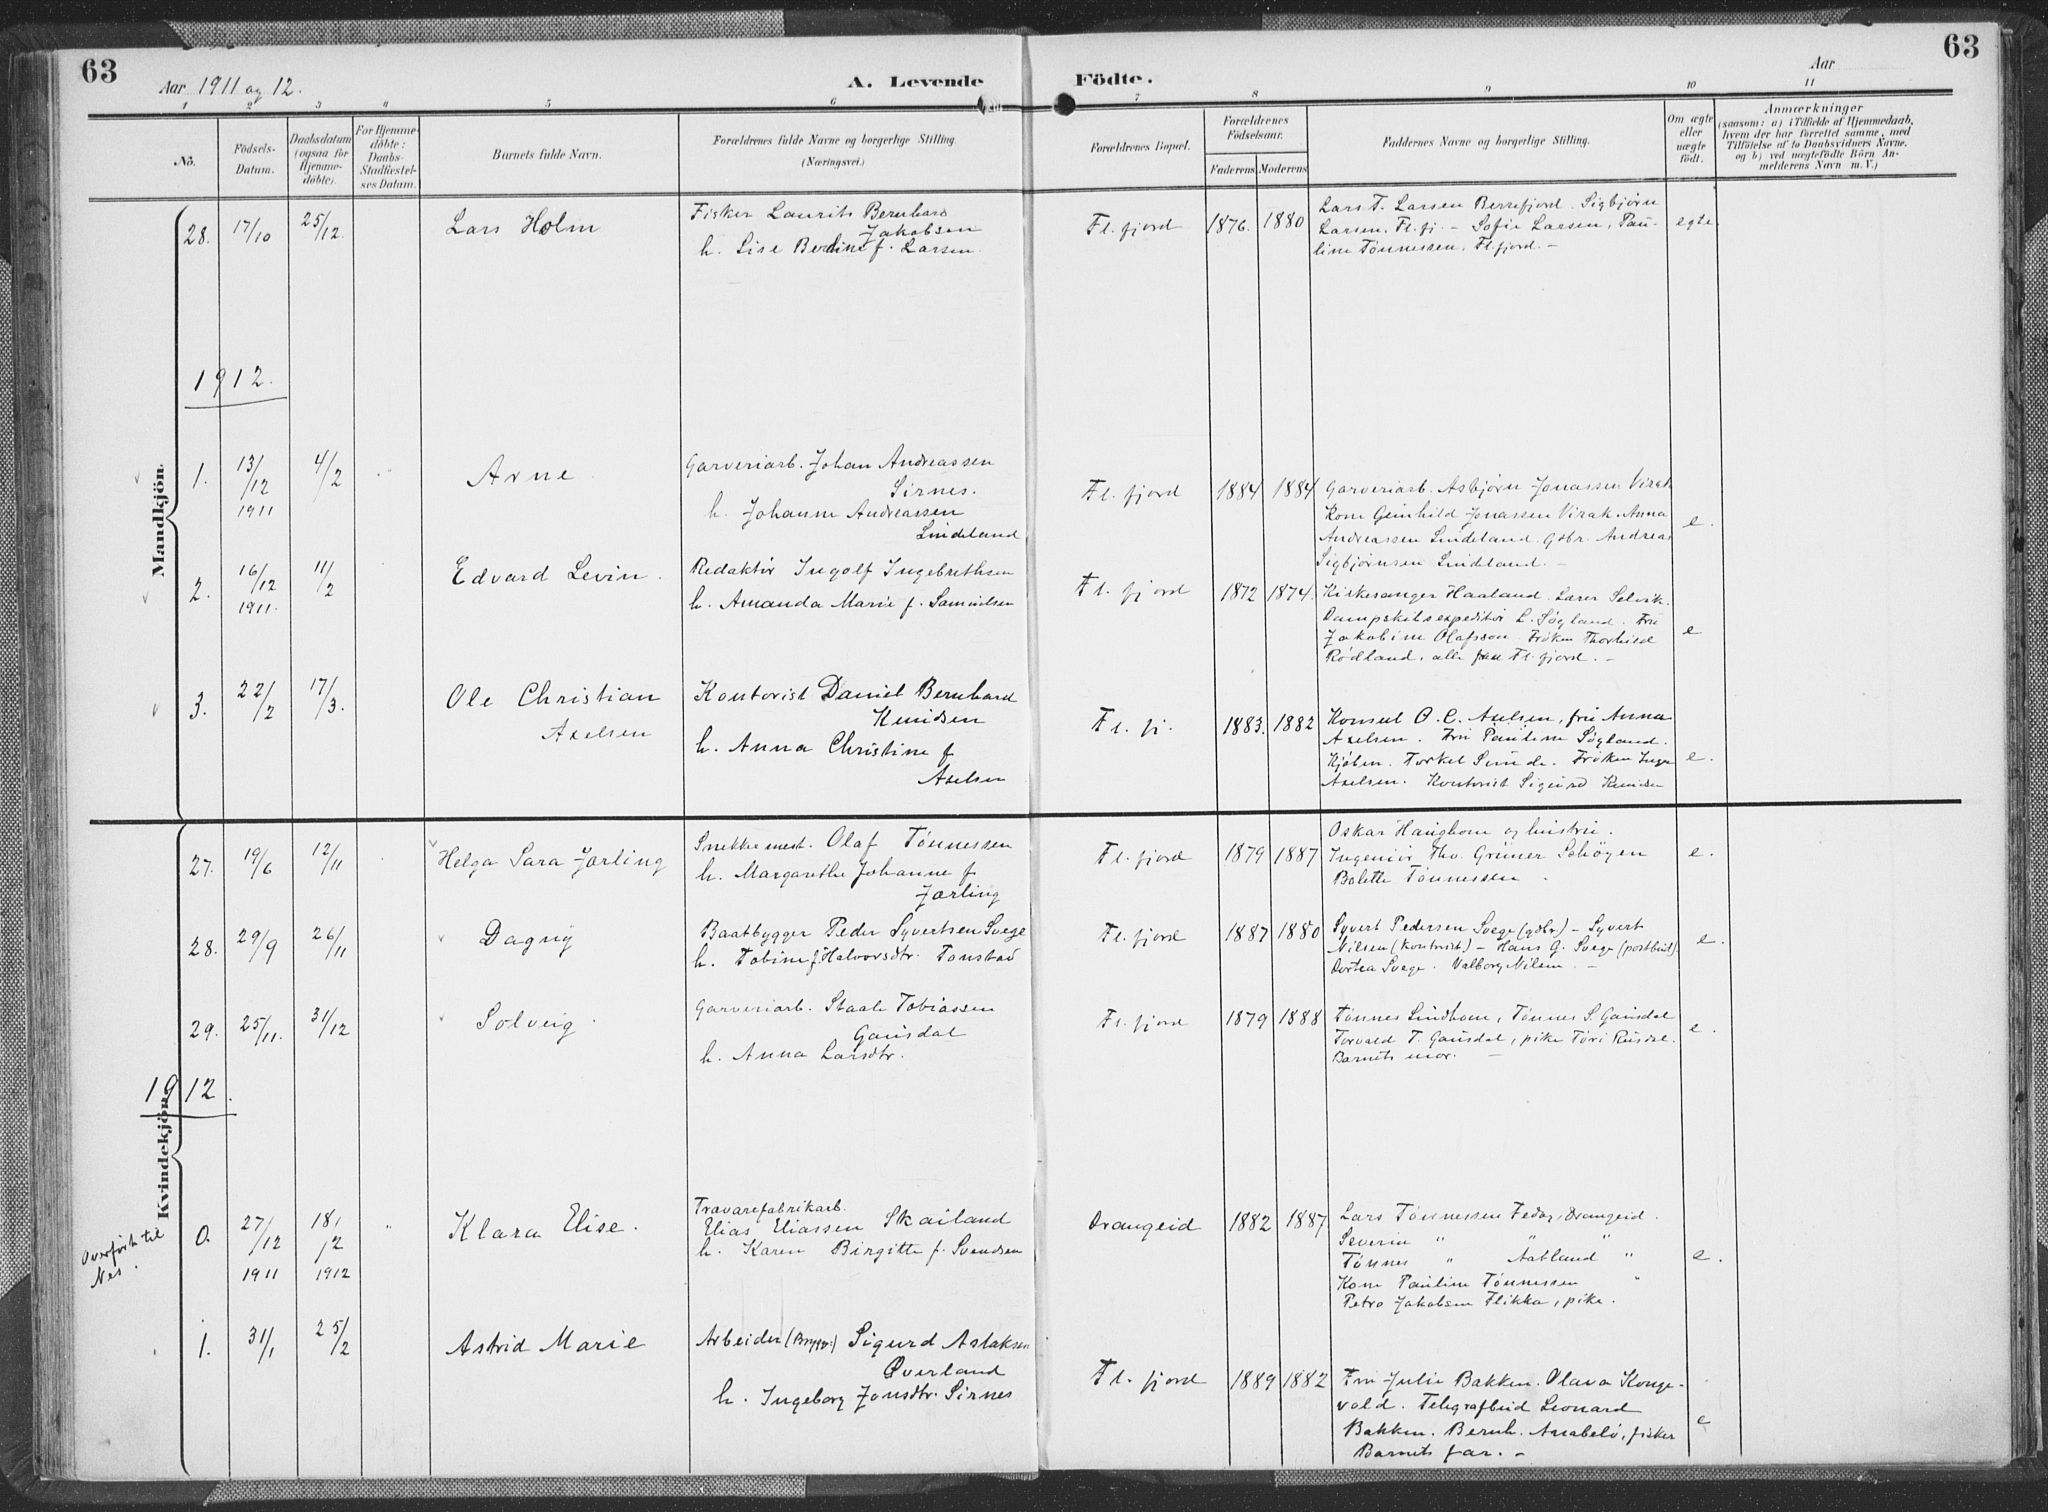 63
Aar 1911 og 12.
A. Levende
Födte.
Aar
63
1 2 3 " 5 6 7 8 9 10 11
No.
Födsels-
Datum.
Daabsdatum
(ogsaa for
Hjemme-
döbte).
For Hjemme-
döbte:
Daabs-
Stadfæstel-
ses Datum.
Barnets fulde Navn.
Forældrenes fulde Navne og borgerlige Stilling
(Næringsvei.)
Forældrenes Bopæl.
Forældrenes
Födselsaar.
Faderens Moderens
Faddernes Navne og borgerlige Stilling.
Om ægte
eller
uægte
födt.
Anmærkninger
(saasom: a) i Tilfælde af Hjemmedaab,
hvem der har forrettet samme, med
Tilföielse af to Daabsvidners Navne.
og b) ved uægtefödte Börn An-
melderens Navn m. V.)
Mandkjön.
28. 17/10 25/12. Lars Holm
Fisker Laurits Bernhard
Jakobsen
h. Lise Berdine f. Larsen.
Fl. fjord 1876. 1880
Lars T. Larsen Berrefjord. Sigbjørn
Larsen, Fl.fj. – Sofie Larsen, Pau-
line Tønnessen, Fl.fjord. –
egte.
1912.
1. 13/12 1911 4/2 Arne
Garveriarb. Johan Andreassen
Sirnes.
h. Johanne Andreassen
Lindeland
Fl. fjord 1884 1884
Garveriarb. Asbjørn Jonassen Virak
Kone Gunhild Jonassen Virak. Anna
Andreassen Lindeland. Gdbr. Andreas
Sigbjørnsen Lindeland. –
e.
2. 16/12 1911. 11/2 Edvard Levin.
Redaktør Ingolf Ingebrethsen
h. Amanda Marie f. Samuelsen
Fl. fjord 1872 1874.
Kirkesanger Haaland. Lærer Selvik.
Dampskibsexpeditør L. Søgland. Fru
Jakobine Olafsson. Frøken Thorhild
Rødland, alle fra Fl.fjord. –
e
3. 22/2 17/3. Ole Christian
Axelsen
Kontorist Daniel Bernhard
Knudsen
h. Anna Christine f
Axelsen
Fl. fj. 1883. 1882
Konsul O. C. Axelsen, fru Anna
Axelsen. Fru Pauline Søgland.
Kjøbm. Torkel Sunde. Frøken Inga
Axelsen. Kontorist Sigurd Knudsen
e.
Kvindekjön.
27. 19/6 12/11 Helga Sara Jærling
Snekkermest. Olaf Tønnessen
h. Margarethe Johanne f
Jærling
Fl. fjord 1879 1887
Oskar Haughom og hustru.
Ingeniør Thv. Grüner Schøyen
Bolette Tønnessen.
e.
28. 29/9 26/11 Dagny
Baatbygger Peder Syvertsen Svege
h. Tobine f. Halvorsdtr. Tonstad
Fl. fjord 1887 1880
Syvert Pedersen Svege (gdbr) – Syvert
Nilsen (kontorist) – Hans G. Svege (postbud).
Dortea Svege. Valborg Nilsen. –
e.
29. 25/11. 31/12 Solveig.
Garveriarb. Staale Tobiassen
Gausdal
h. Anna Larsdtr.
Fl. fjord 1879 1888
Tønnes Lindham, Tønnes S. Gausdal
Torvald T. Gausdal, pike Tøri Rusdal.
Barnets mor. –
e.
1912.
Overført til
Nes.
0. 27/12 1911 18/2 1912 " Klara Elise.
Trævarefabrikarb.
Elias Eliassen Skailand
h. Karen Birgitte f. Svendsen
Drangeid 1882 1887
Lars Tønnessen Fedog, Drangeid.
Severin " " "
Tønnes " Aatland "
Kone Pauline Tønnessen "
Petra Jakobsen Flikka, pike.
e.
1. 31/1 25/2 Astrid Marie
Arbeider (Brygg.) Sigurd Aslaksen
Øverland
h. Ingeborg Jonsdtr. Sirnes
Fl. fjord 1889 1882
Fru Julie Bakken. Olava Konge-
vold. Telegrafbud Leonard
Bakken. Bernh. Anabelø, fisker
Barnets far. –
e